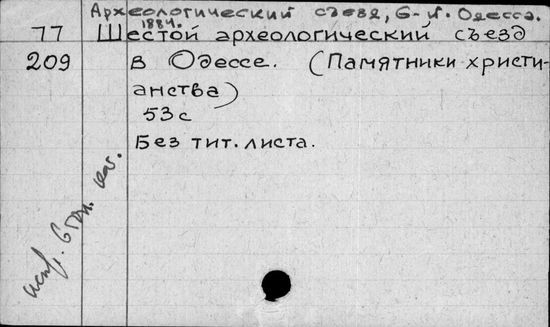 Археологический съезд, 6-й. Одесса.
1884.
77 Шестой археологический съезд
209 в Одессе. (Памятники христи-
анства)
53 с
Без тит. листа.